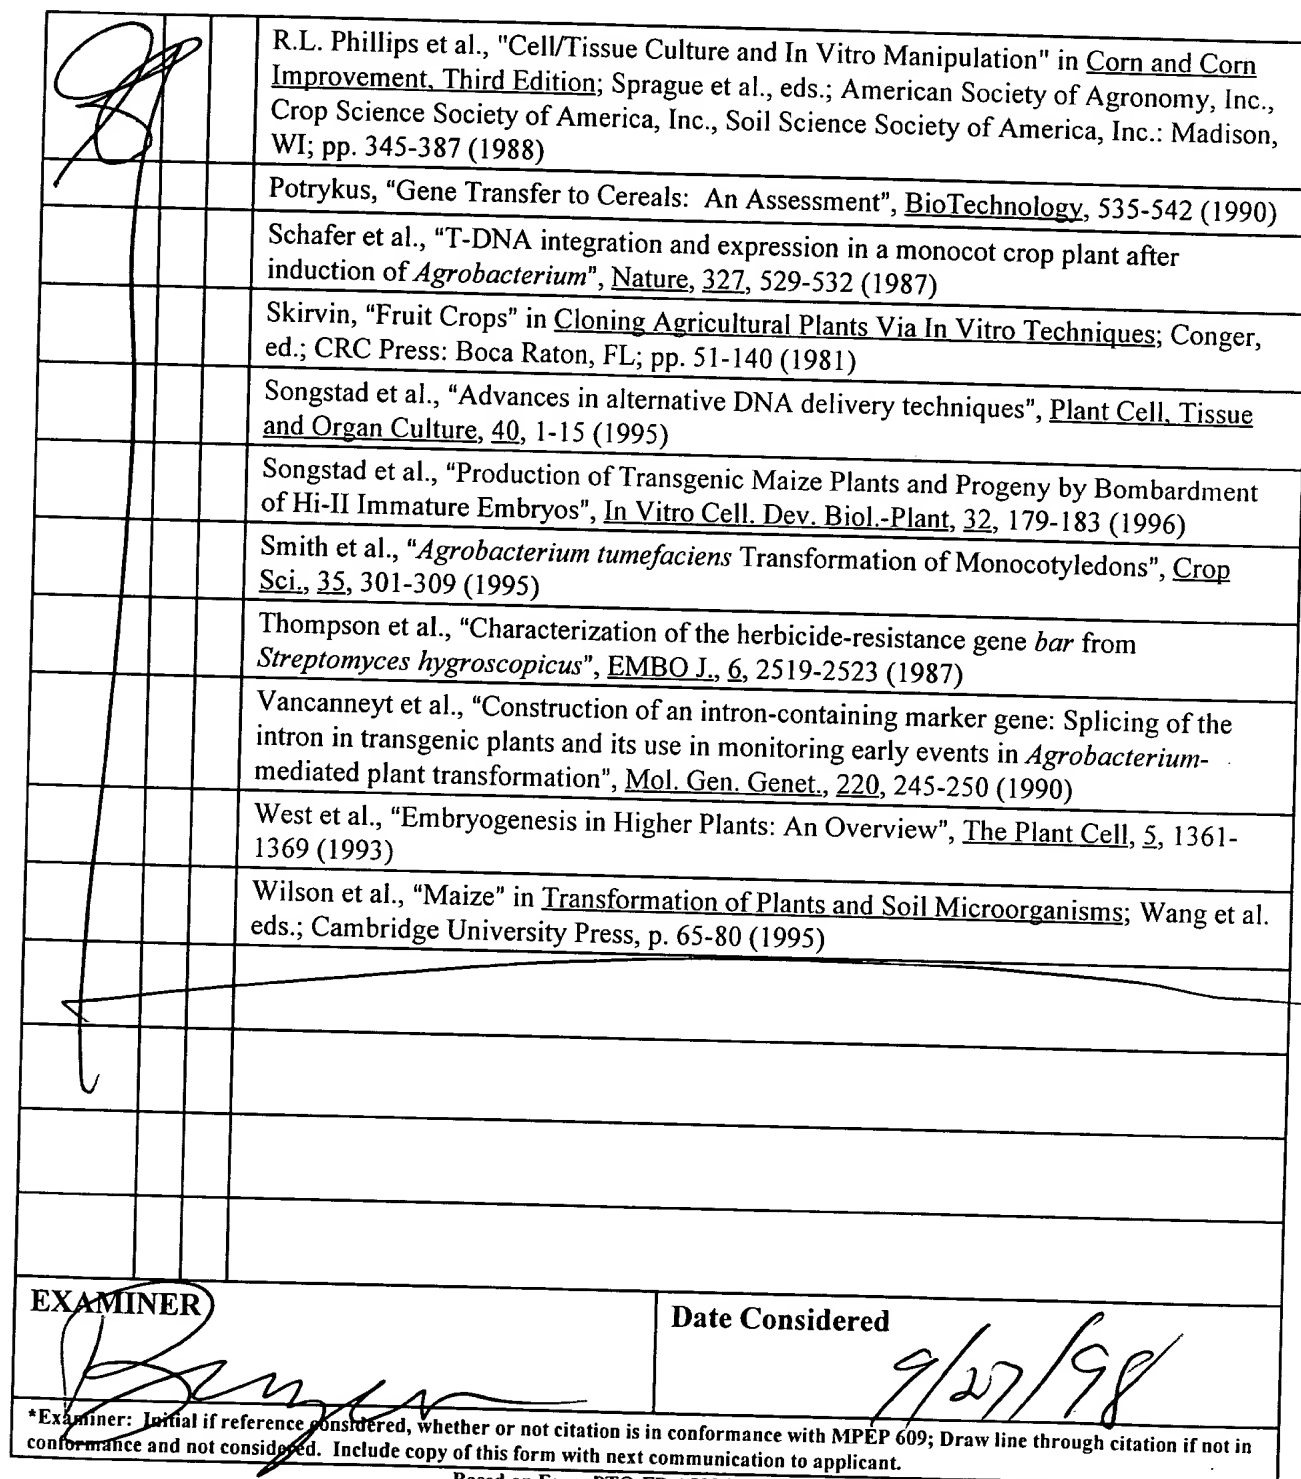 R.L. Phillips et al., "Cell/Tissue Culture and In Vitro Manipulation" in Corn and Corn
Improvement, Third Edition; Sprague et al., eds.; American Society of Agronomy, Inc.,
Crop Science Society of America, Inc., Soil Science Society of America, Inc.: Madison,
WI; pp. 345-387 (1988)
Potrykus, "Gene Transfer to Cereals: An Assessment", BioTechnology, 535-542 (1990)
Schafer et al., "T-DNA integration and expression in a monocot crop plant after
induction of Agrobacterium", Nature, 327, 529-532 (1987)
Skirvin, "Fruit Crops" in Cloning Agricultural Plants Via In Vitro Techniques; Conger,
ed.; CRC Press: Boca Raton, FL; pp. 51-140 (1981)
Songstad et al., "Advances in alternative DNA delivery techniques", Plant Cell, Tissue
and Organ Culture, 40, 1-15 (1995)
Songstad et al., "Production of Transgenic Maize Plants and Progeny by Bombardment
of Hi-II Immature Embryos", In Vitro Cell. Dev. Biol.-Plant, 32, 179-183 (1996)
Smith et al., "Agrobacterium tumefaciens Transformation of Monocotyledons", Crop
Sci., 35, 301-309 (1995)
Thompson et al., "Characterization of the herbicide-resistance gene bar from
Streptomyces hygroscopicus", EMBO J., 6, 2519-2523 (1987)
Vancanneyt et al., "Construction of an intron-containing marker gene: Splicing of the
intron in transgenic plants and its use in monitoring early events in Agrobacterium-
mediated plant transformation", Mol. Gen. Genet., 220, 245-250 (1990)
West et al., "Embryogenesis in Higher Plants: An Overview", The Plant Cell, 5, 1361-
1369 (1993)
Wilson et al., "Maize" in Transformation of Plants and Soil Microorganisms; Wang et al.
eds.; Cambridge University Press, p. 65-80 (1995)
EXAMINER
Date Considered
9/27/98
*Examiner: Initial if reference considered, whether or not citation is in conformance with MPEP 609; Draw line through citation if not in
conformance and not considered. Include copy of this form with next communication to applicant.